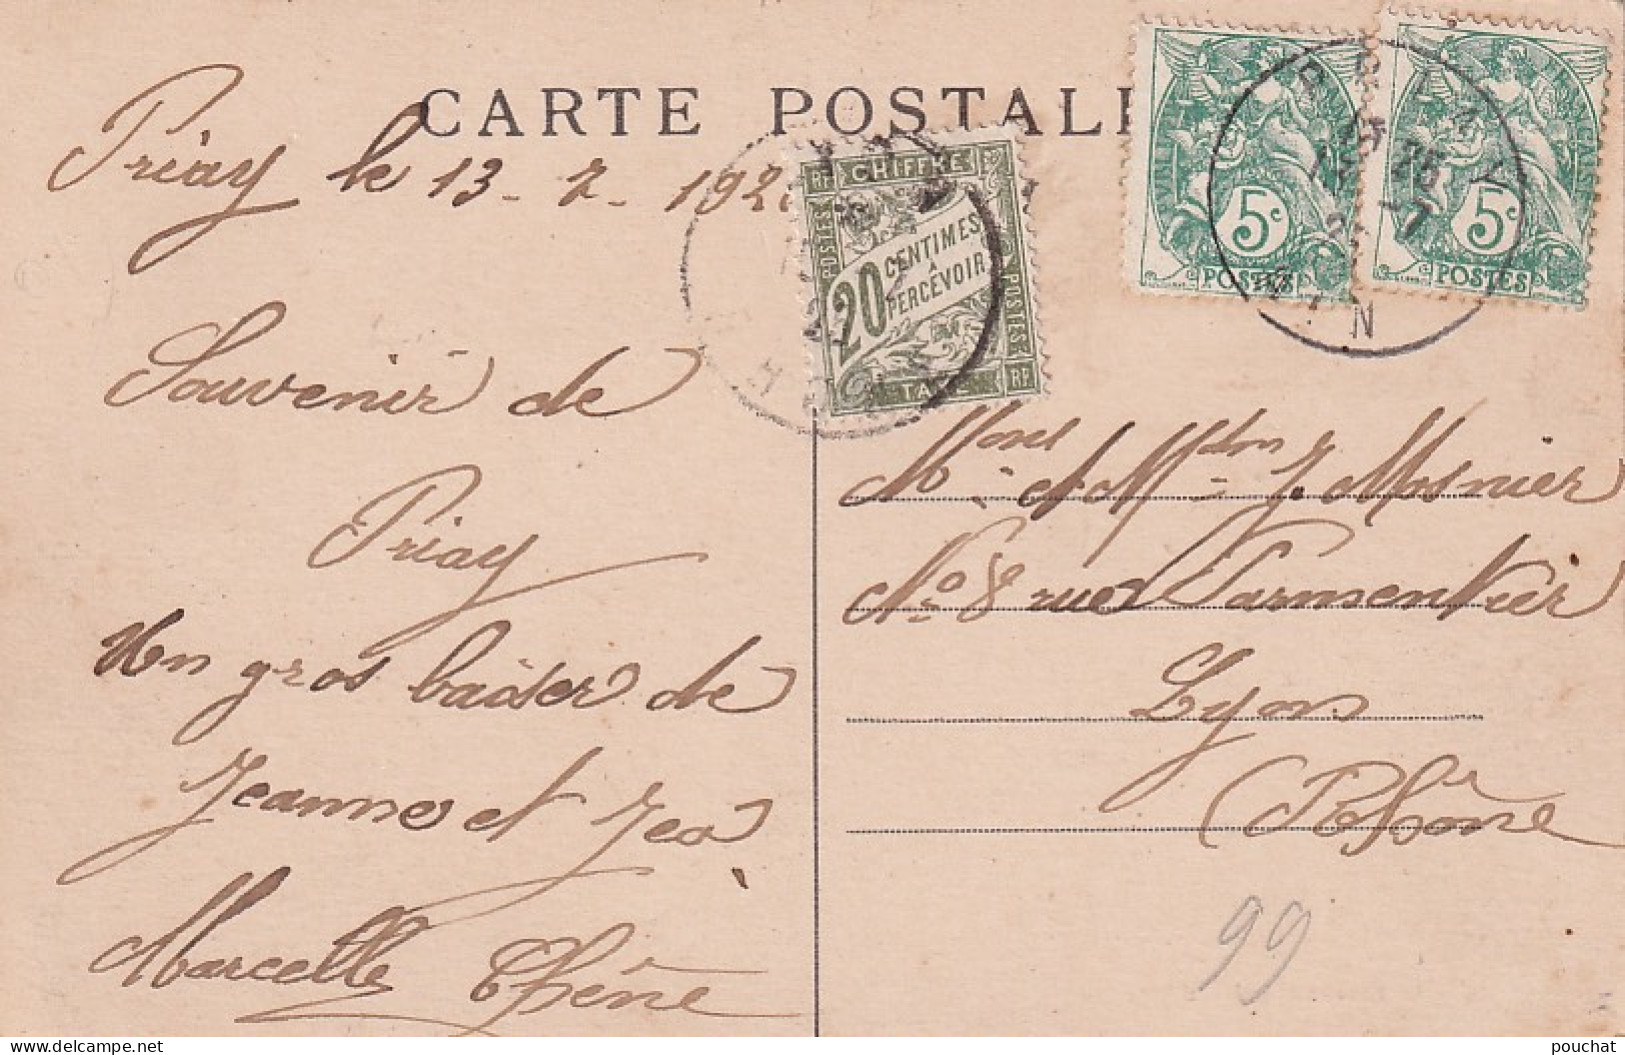 CARTE POSTALE
Priay le 13-7-192
Souvenir de
Priay
Un gros baiser de
Jeanne et Jea
Marcelle Thène
CHIFFRE
RF
20 CENTIMES
A
PERCEVOIR
POSTES
POSTES
TAXE
RF
5c
POSTES
5c
POSTES
PRIAY
AIN
RHONE
Monsr et Mdm J. Mosnier
No 8 rue Parmentier
Lyon
(Rhône
99
pouchat
delcampe.net